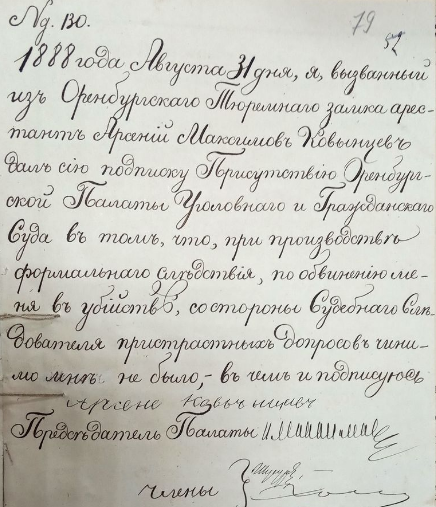 № 130.
79
52
1888 года Августа 31 дня, я, вызванный
изъ Оренбургскаго Тюремнаго замка арес-
тантъ Арсеній Максимовъ Ковынцевъ
далъ сію подписку Присутствію Оренбург-
ской Палаты Уголовнаго и Гражданскаго
Суда въ томъ, что, при производствѣ
формальнаго слѣдствія, по обвиненію ме-
ня въ убійствѣ, со стороны Судебнаго Слѣ-
дователя пристрастныхъ допросовъ чини-
мо мнѣ не было,- въ чемъ и подписуюсь
Предсѣдатель Палаты
члены